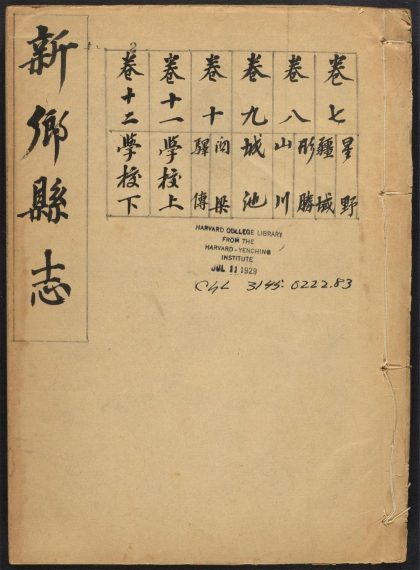 新鄉縣志
卷七 星野 疆域
卷八 形勝 山川
卷九 城池
卷十 関梁 驛傳
卷十一 學校上
卷十二 學校下
HARVARD COLLEGE LIBRARY
FROM THE
HARVARD-YENCHING
INSTITUTE
JUL 11 1929
CHL 3145.0222.83